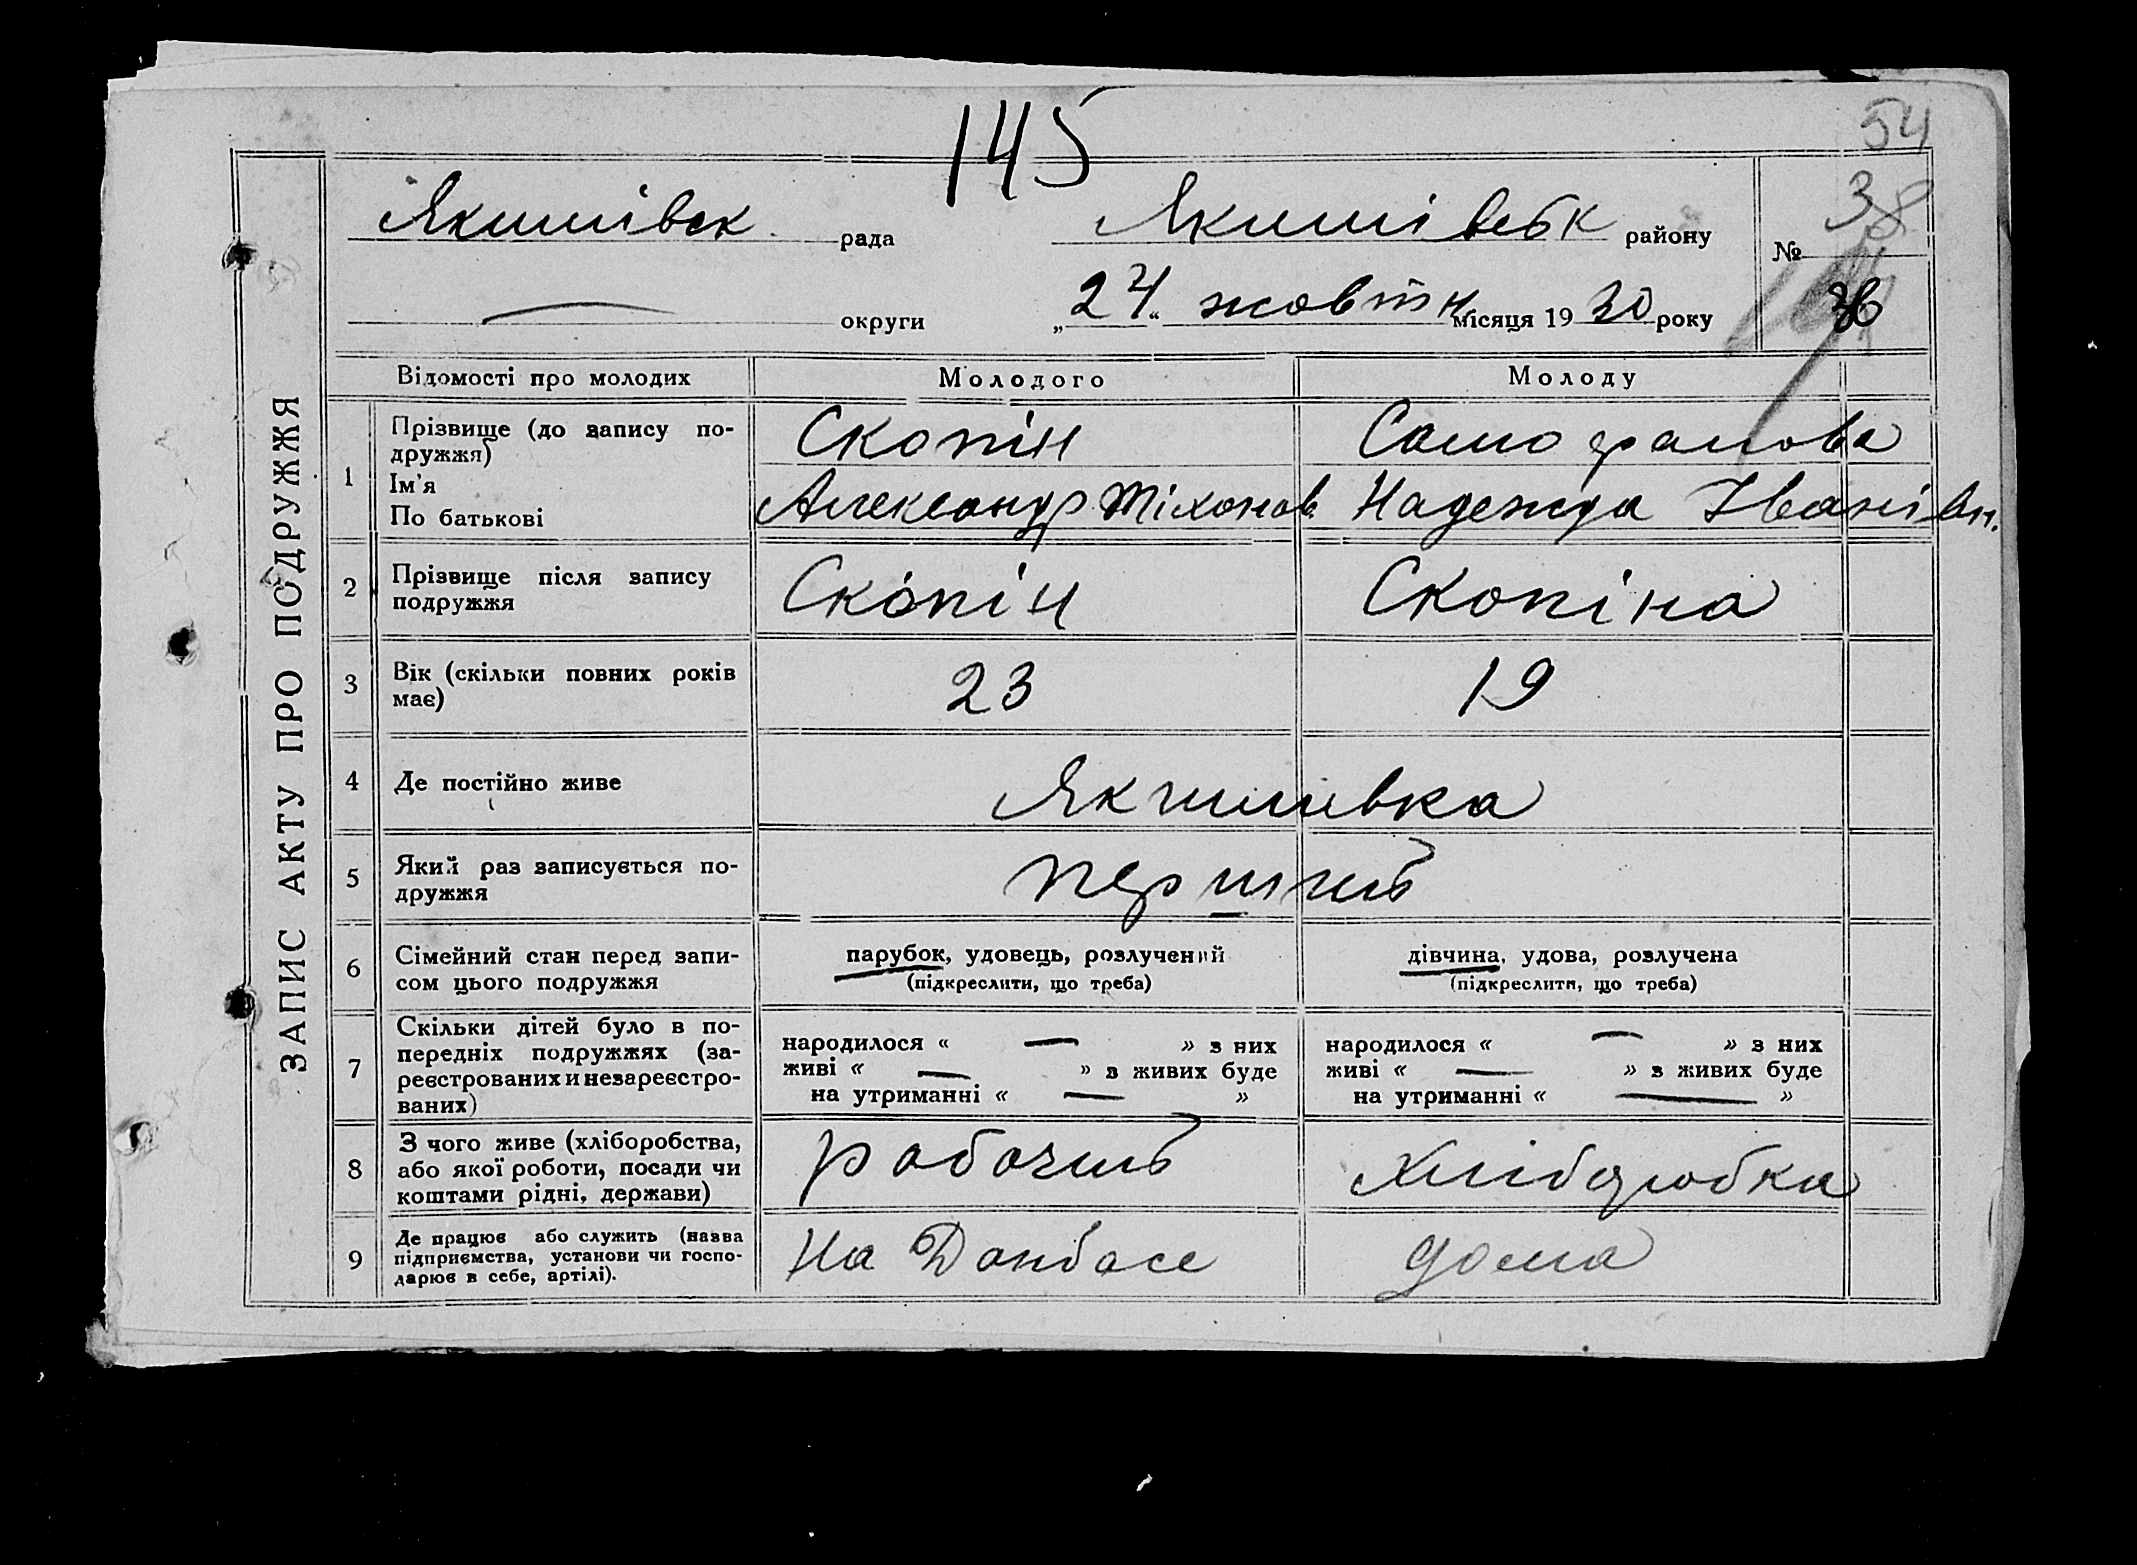 145
54
Якимівск рада Якимівськ району № 38
округи „24“ жовтня місяця 1930 року
ЗАПИС АКТУ ПРО ПОДРУЖЖЯ
Відомості про молодих Молодого Молоду
1 Прізвище (до запису по-
дружжя) Скопін
Ім'я
По батькові Александр Тіхонов. Надежда Іванівн.
2 Прізвище після запису
подружжя Скопін Скопіна
3 Вік (скільки повних років
має) 23 19
4 Де постійно живе Якимівка
5 Який раз записується по-
дружжя перший
6 Сімейний стан перед запи-
сом цього подружжя парубок, удовець, розлучений дівчина, удова, розлучена
(підкреслити, що треба) (підкреслити, що треба)
7 Скільки дітей було в по-
передніх подружжях (за-
реєстрованих и незареєстро-
ваних)
народилося « — » з них народилося « — » з них
живі « — » з живих буде живі « — » з живих буде
на утриманні « — » на утриманні « — »
8 З чого живе (хліборобства,
або якої роботи, посади чи
коштами рідні, держави) рабочий Хліборобка
9 Де працює або служить (назва
підприємства, установи чи госпо-
дарює в себе, артілі). На Донбасе дома